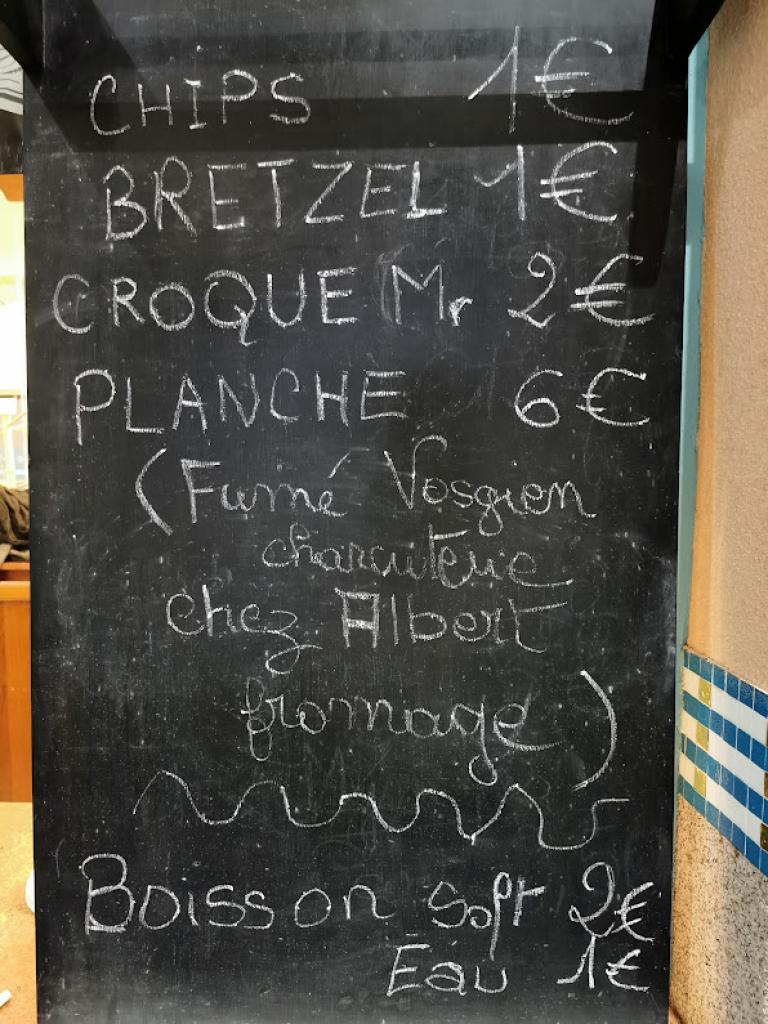 CHIPS 1€
BRETZEL 1€
CROQUE Mr 2€
PLANCHE 6€
(Fumé Vosgien
charcuterie
chez Albert
fromage)
Boisson soft 2€
Eau 1€